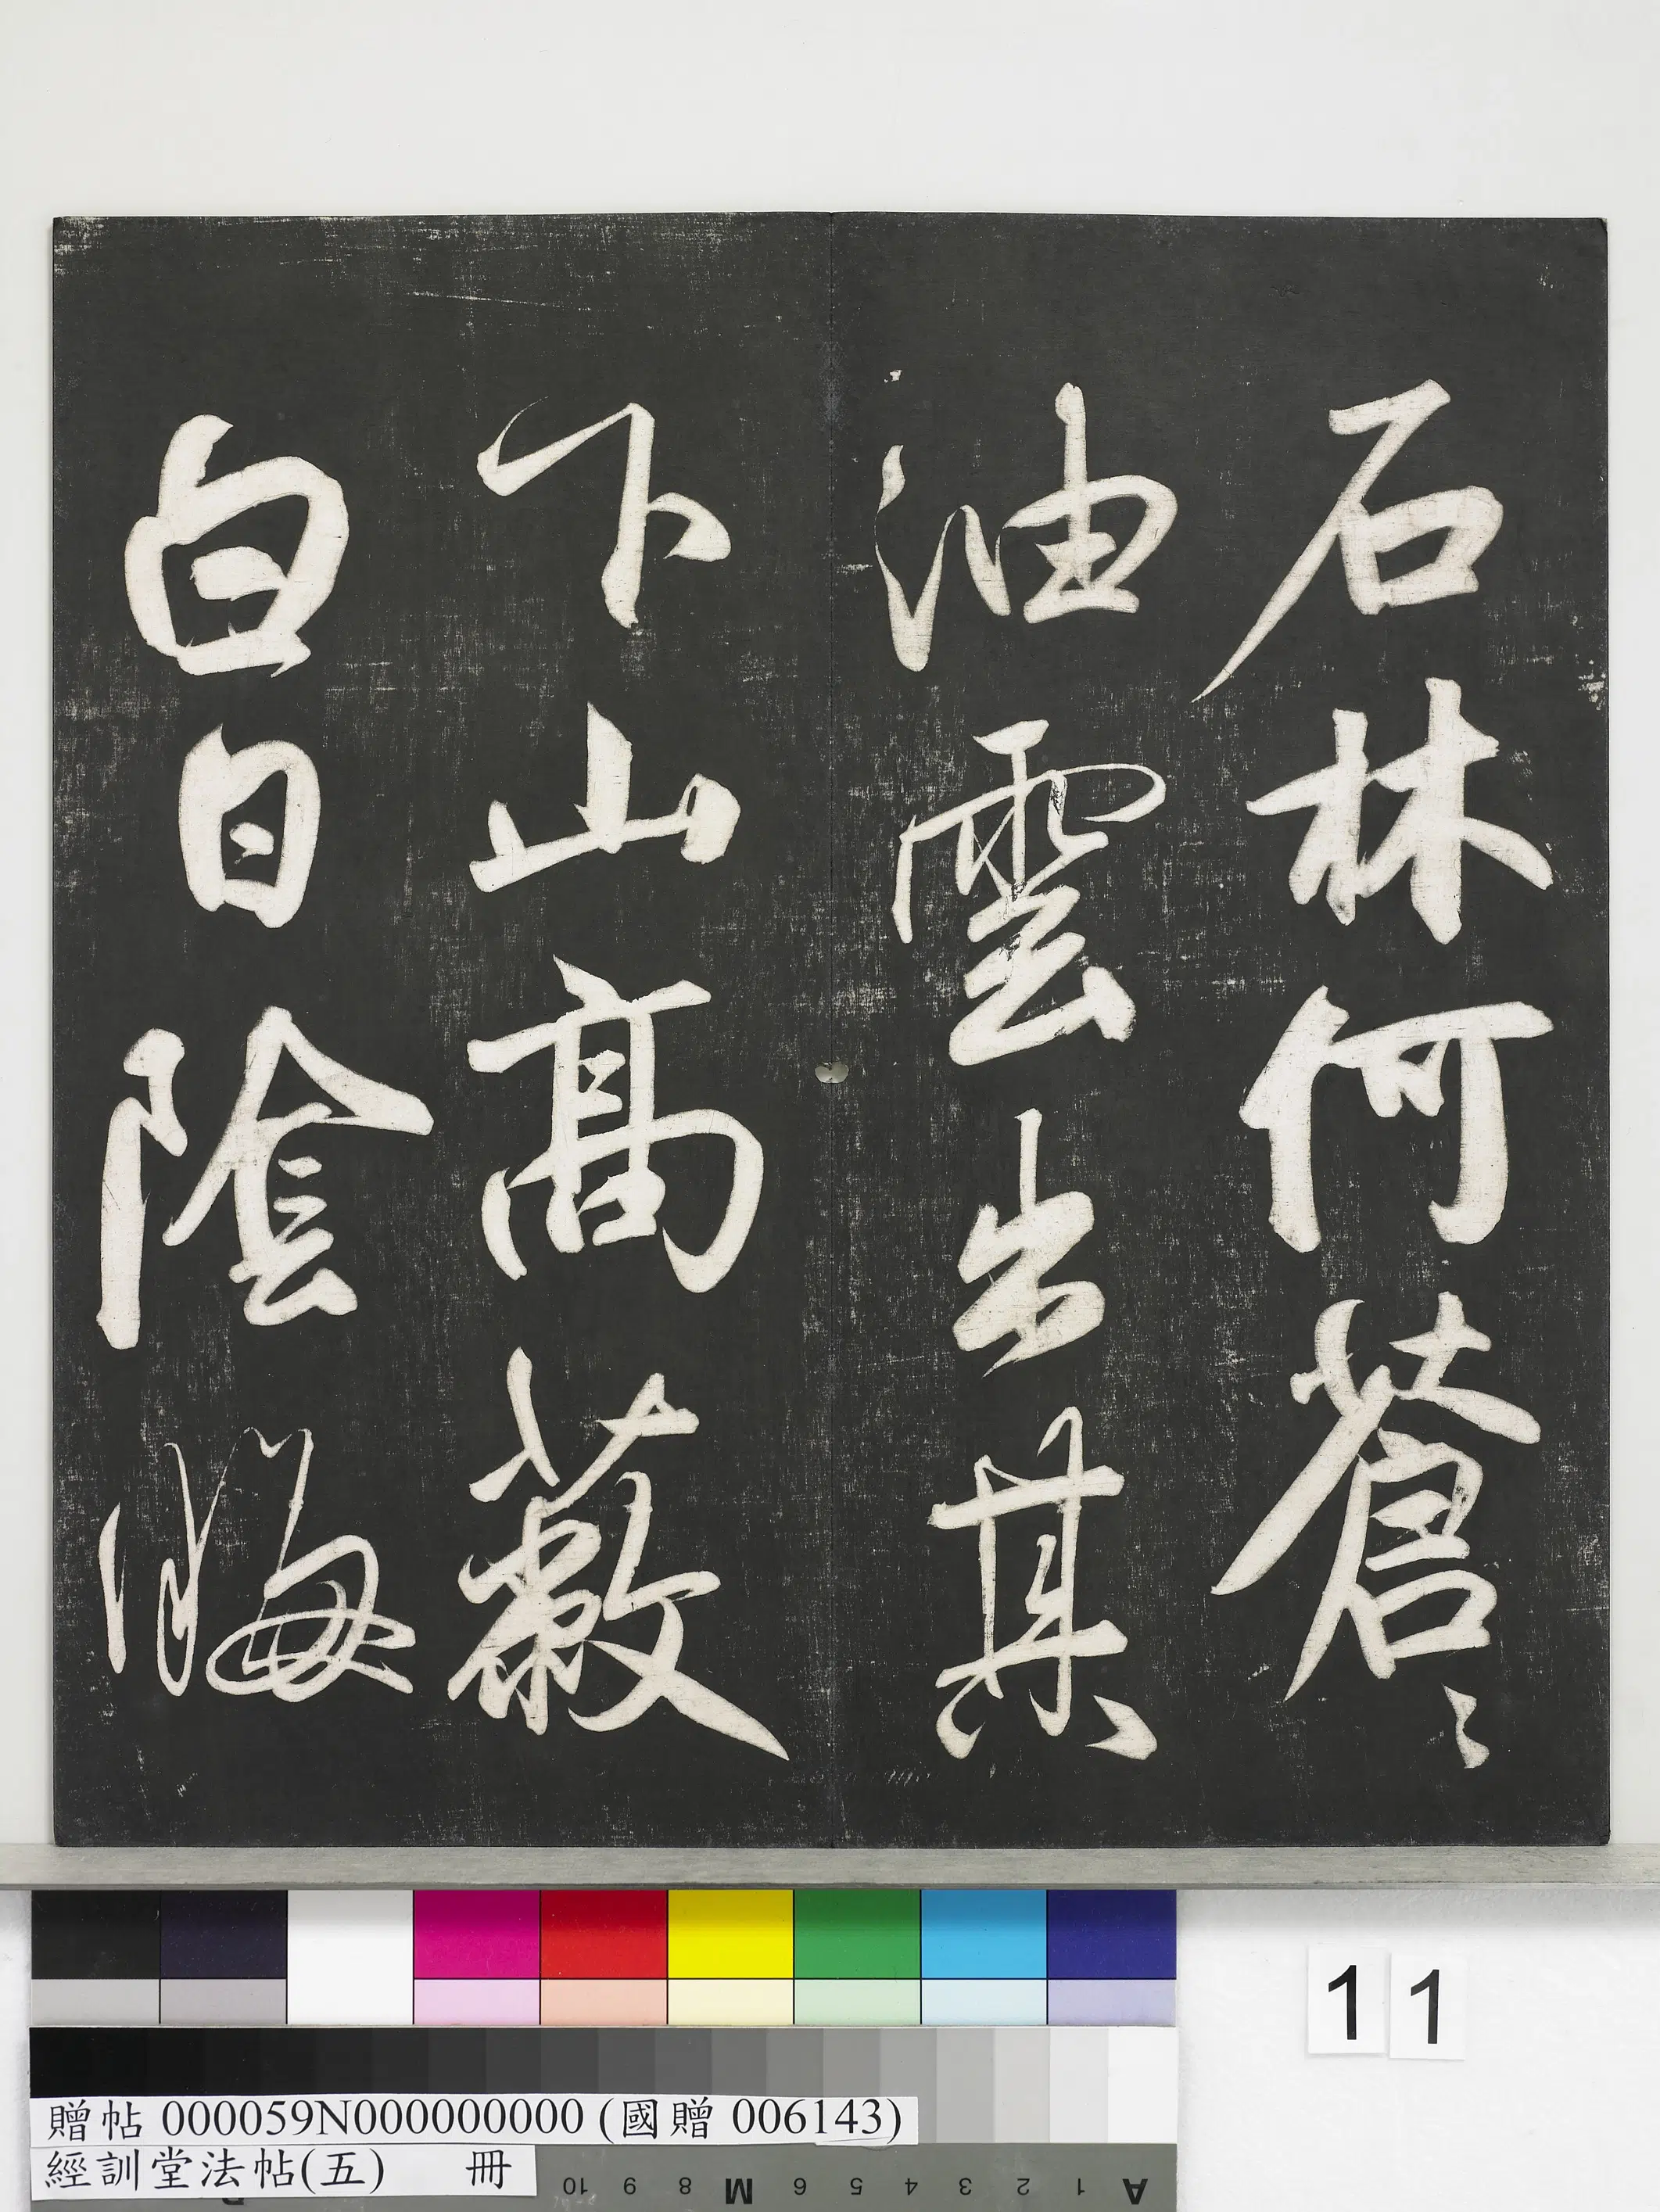 石林何蒼〻
油雲出其
下山高蔽
白日陰晦
11
贈帖 000059N000000000 (國贈 006143)
經訓堂法帖(五) 冊
10 9 8 M 6 5 4 3 2 1 A